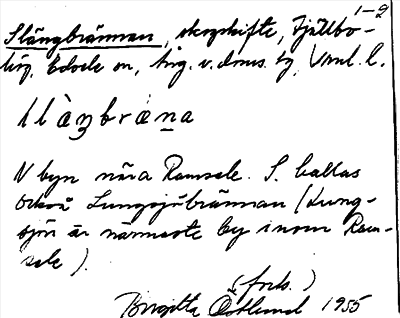 1-2
Slängbrännan, skogskifte, Fjällbo-
hög, Edsele sn,
slàŋbrǽna
N byn nära Ramsele. S. kallas
också Lungsjöbrännan (Lung-
sjön är närmaste by inom Ram-
sele).
(forts.)
Birgitta Östlund 1955